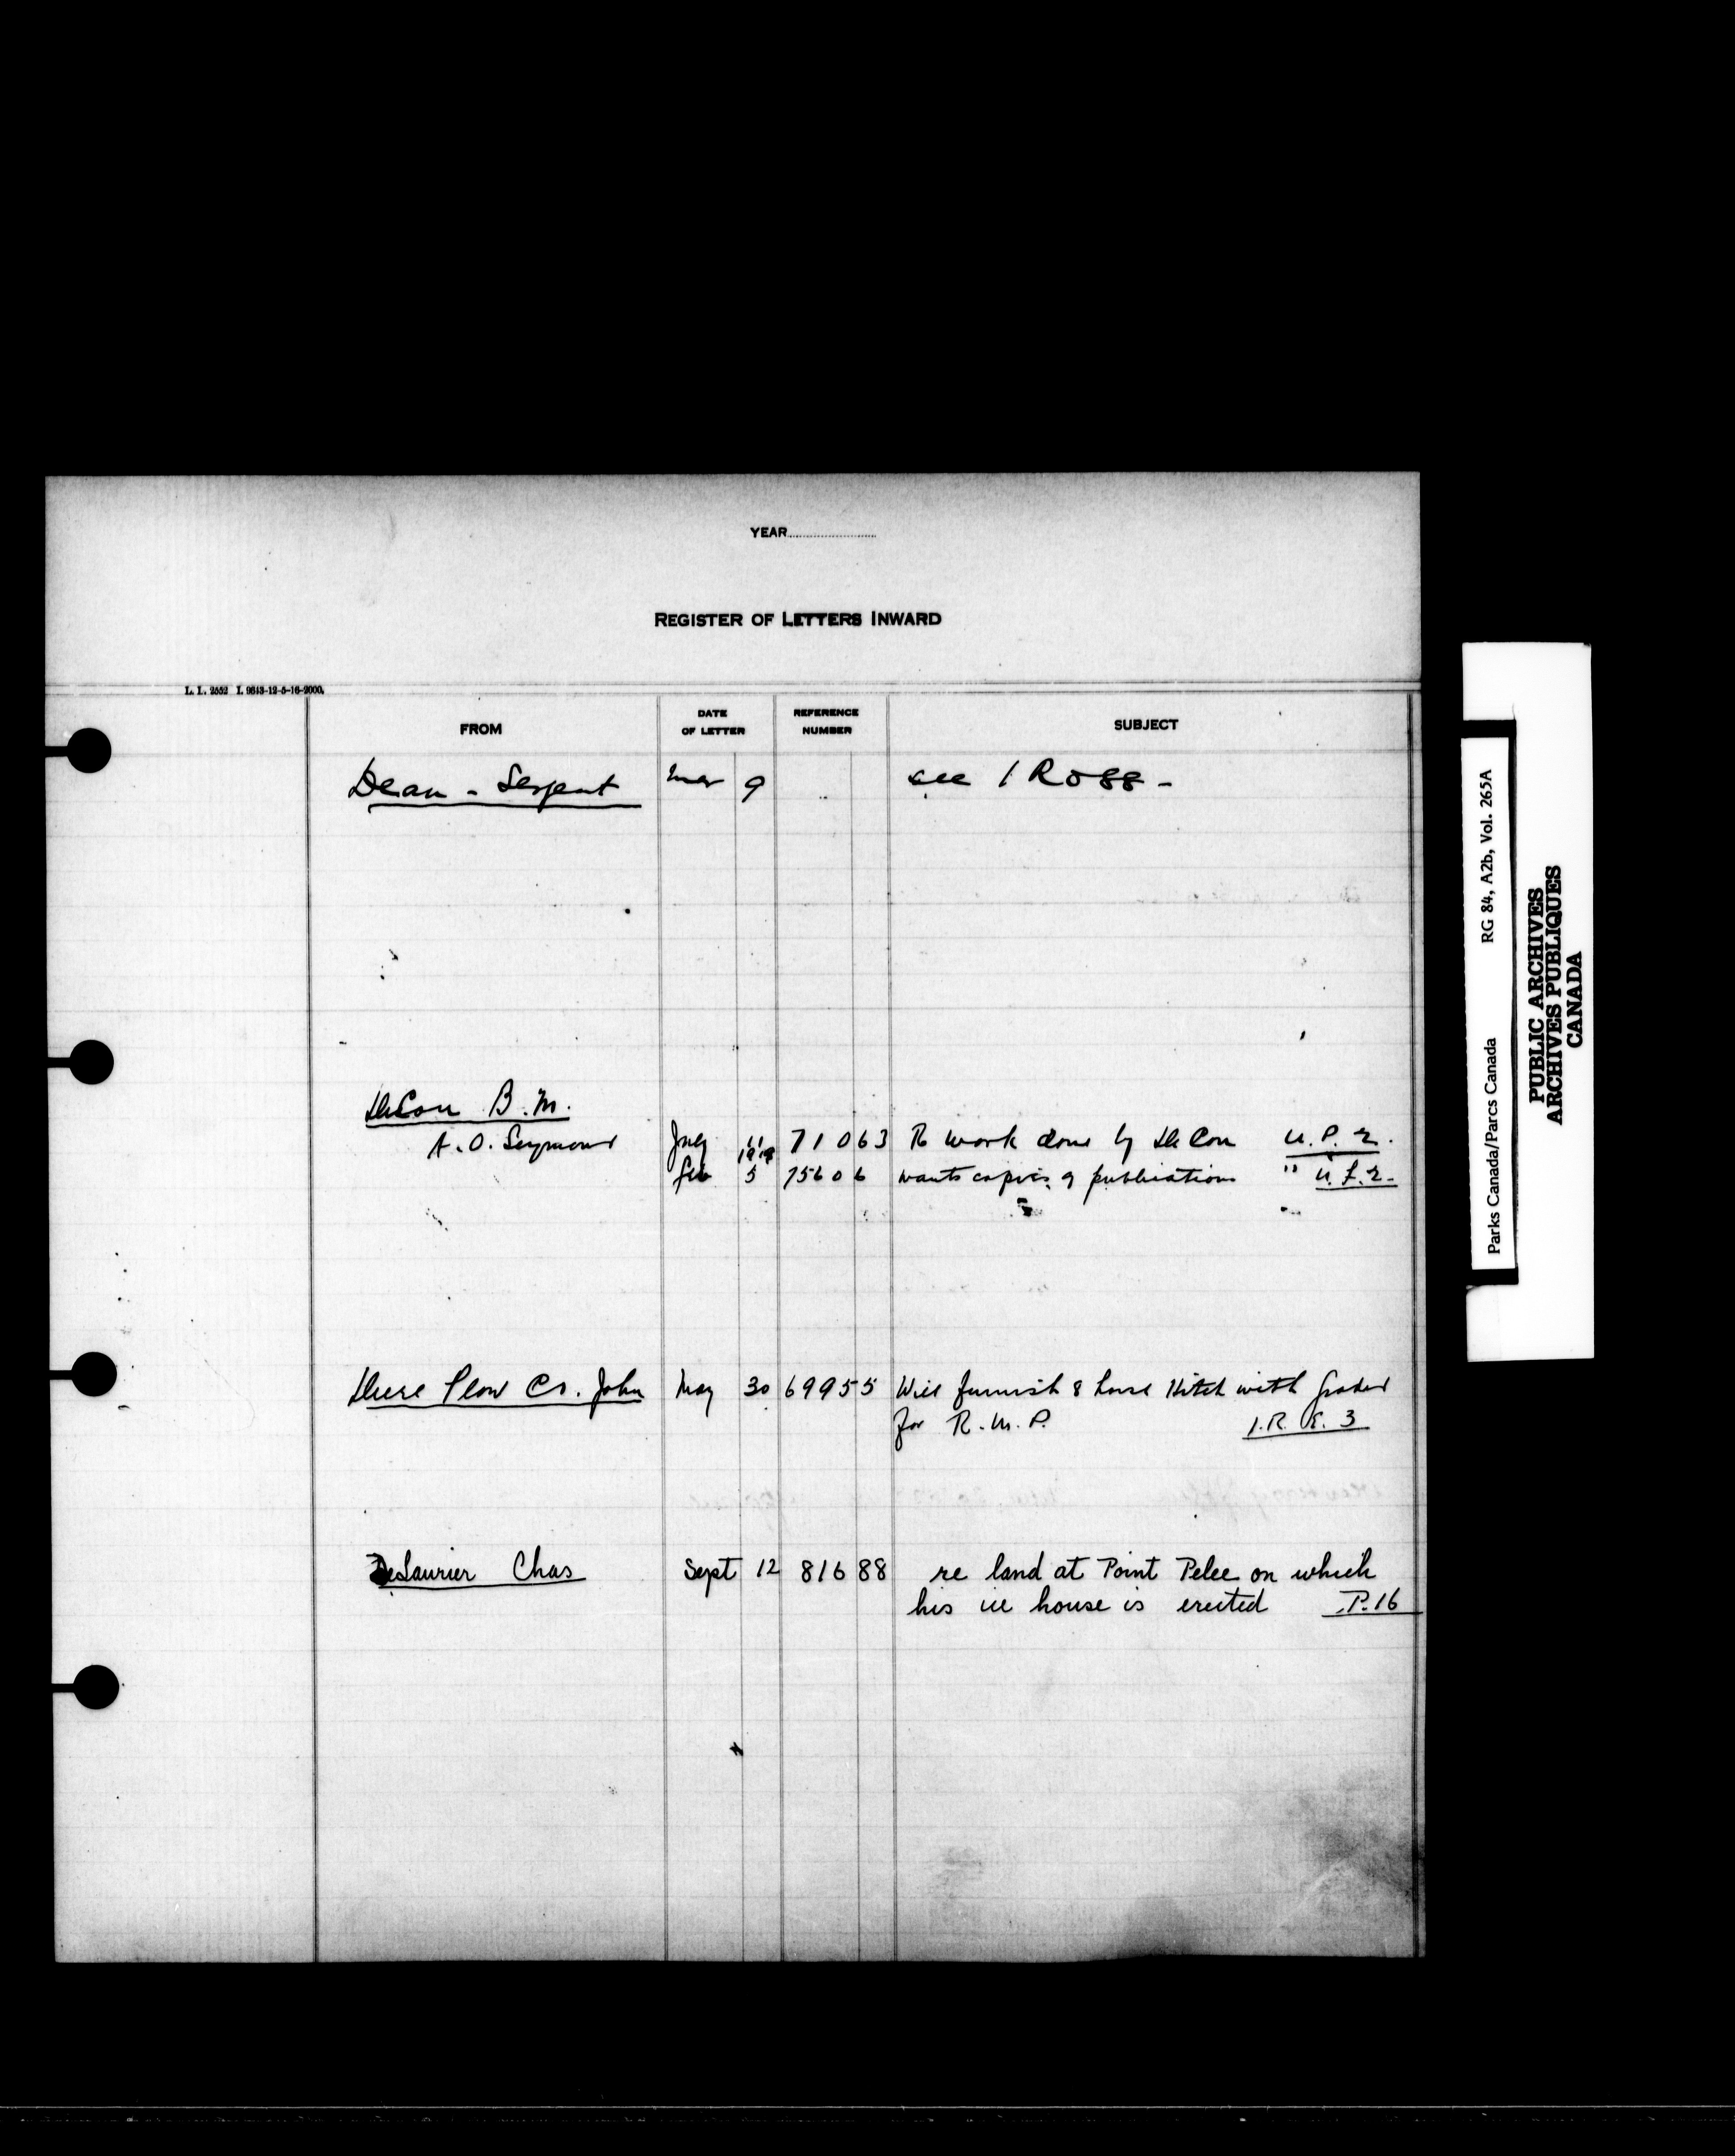 YEAR
REGISTER OF LETTERS INWARD
L. L. 2552 I. 9643-12-5-16-2000.
FROM DATE OF LETTER REFERENCE NUMBER SUBJECT
Dean - Serjent Mar 9 see 1 R 088 -
DeCou B. M.
A. O. Seymour July 11 71063 Re work done by DeCou U. P. 2.
1919
Feb 5 75606 wants copies of publications " U. L. 2.
Deere Plow Co. John May 30 69955 Will furnish 8 horse Hitch with Grader
for R. M. P. 1. R. E. 3
DeLaurier Chas Sept 12 81688 re land at Point Pelee on which
his ice house is erected P. 16
Parks Canada/Parcs Canada RG 84, A2b, Vol. 265A
PUBLIC ARCHIVES
ARCHIVES PUBLIQUES
CANADA